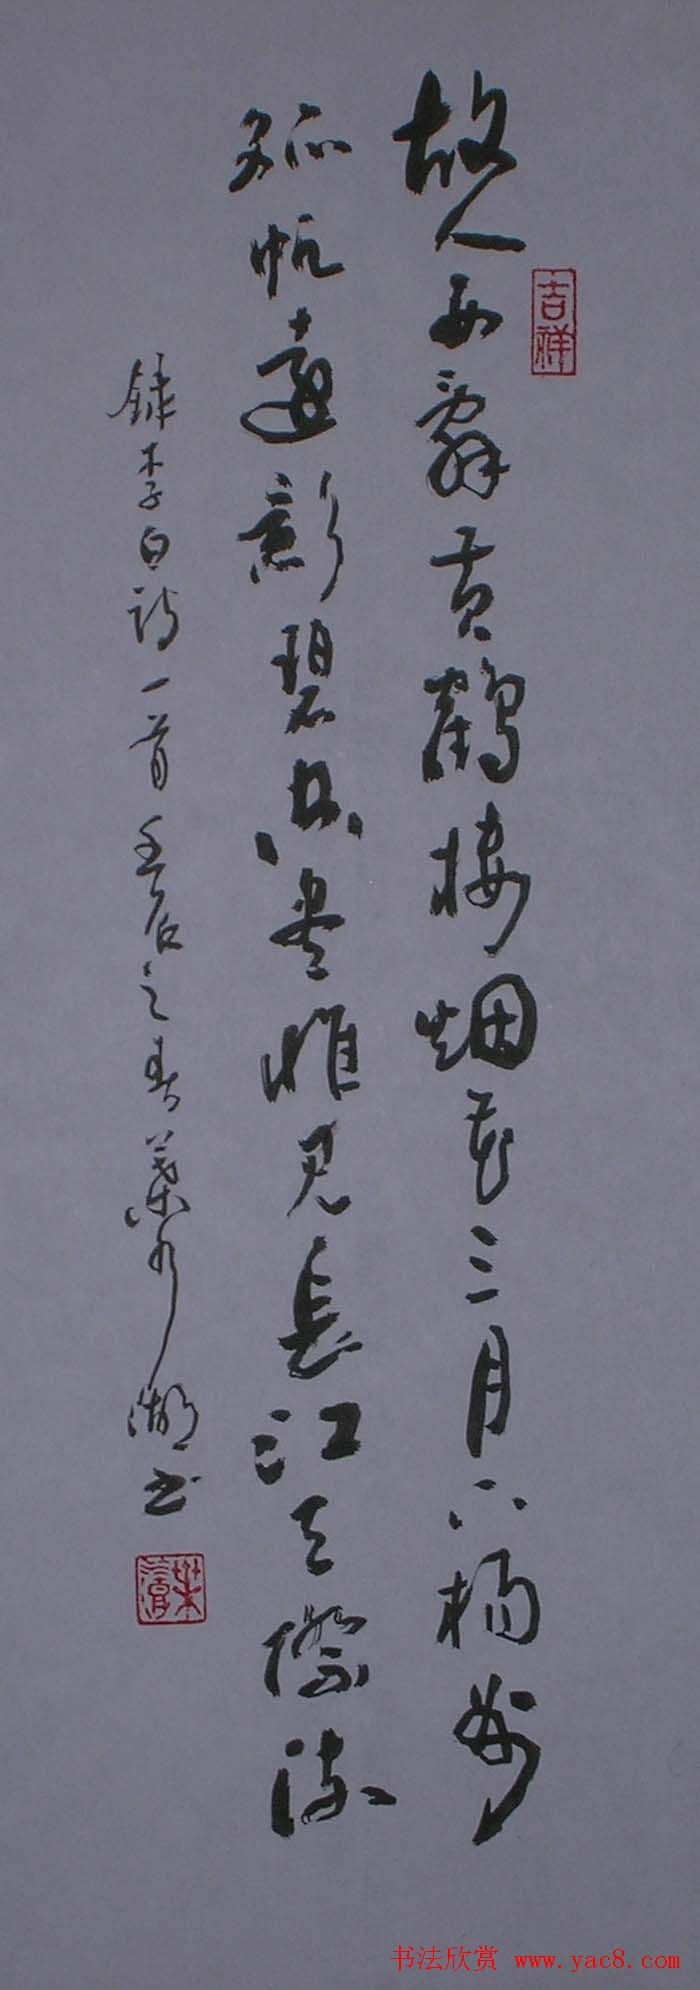 故人西辭黄鶴樓烟花三月下楊州
吉祥
孤帆遠影碧空盡惟見長江天際流
録李白詩一首壬辰之春葉湖書
书法欣赏 www.yac8.com